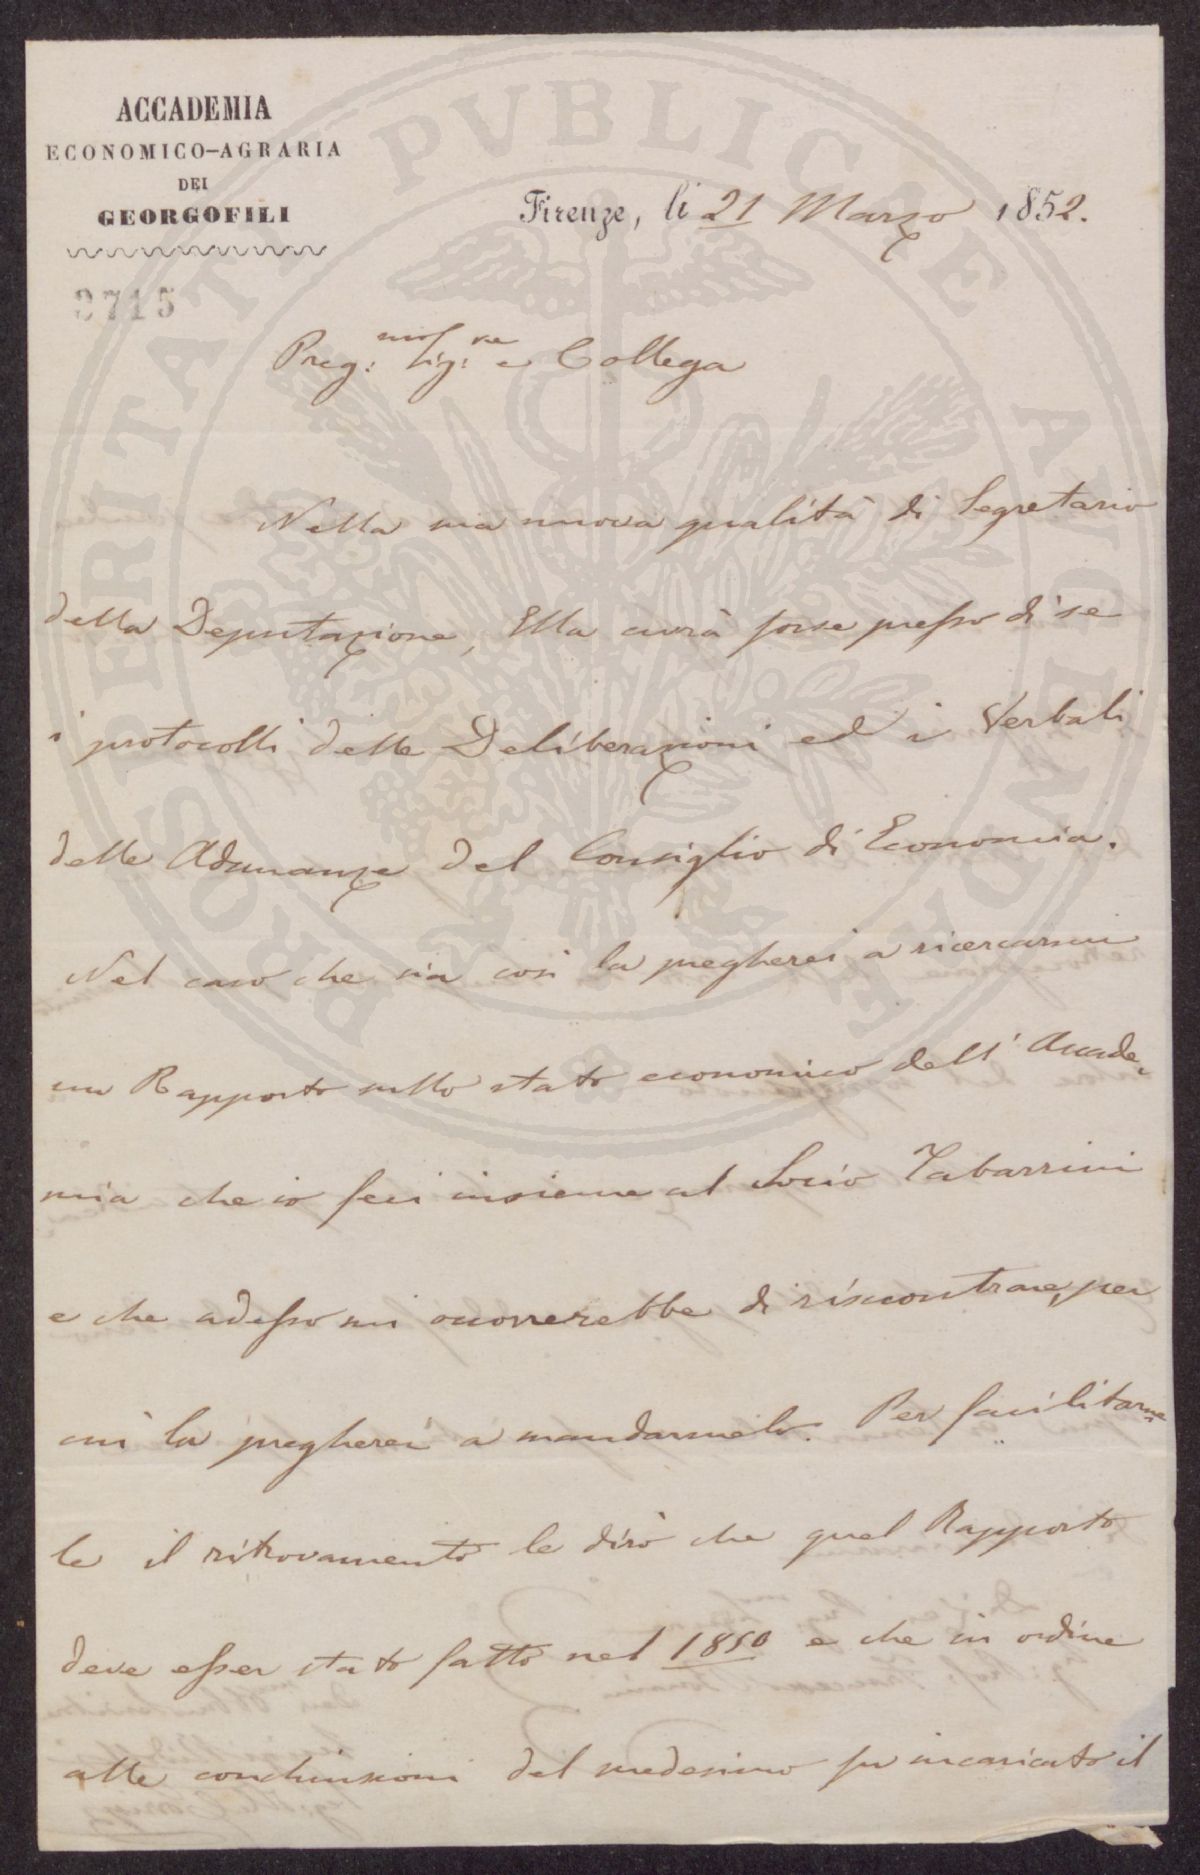 ACCADEMIA
ECONOMICO-AGRARIA
DEI
GEORGOFILI
Firenze, li 21 Marzo 1852.
2715
Preg:mo Sig:re e Collega
Nella sua nuova qualità di Segretario
della Deputazione, Ella avrà forse presso di se
i protocolli delle Deliberazioni ed i Verbali
delle Adunanze del Consiglio di Economia.
Nel caso che sia così la pregherei a ricercarmi
un Rapporto sullo stato economico dell'Accade-
mia che io feci insieme al Socio Tabarrini
e che adesso mi occorrerebbe di riscontrare, per
cui la pregherei a mandarmelo. Per facilitar-
le il ritrovamento le dirò che quel Rapporto
deve esser stato fatto nel 1850 e che in ordine
alle conclusioni del medesimo fu incaricato il
PROSPERITATI PVBLICAE AVGENDAE